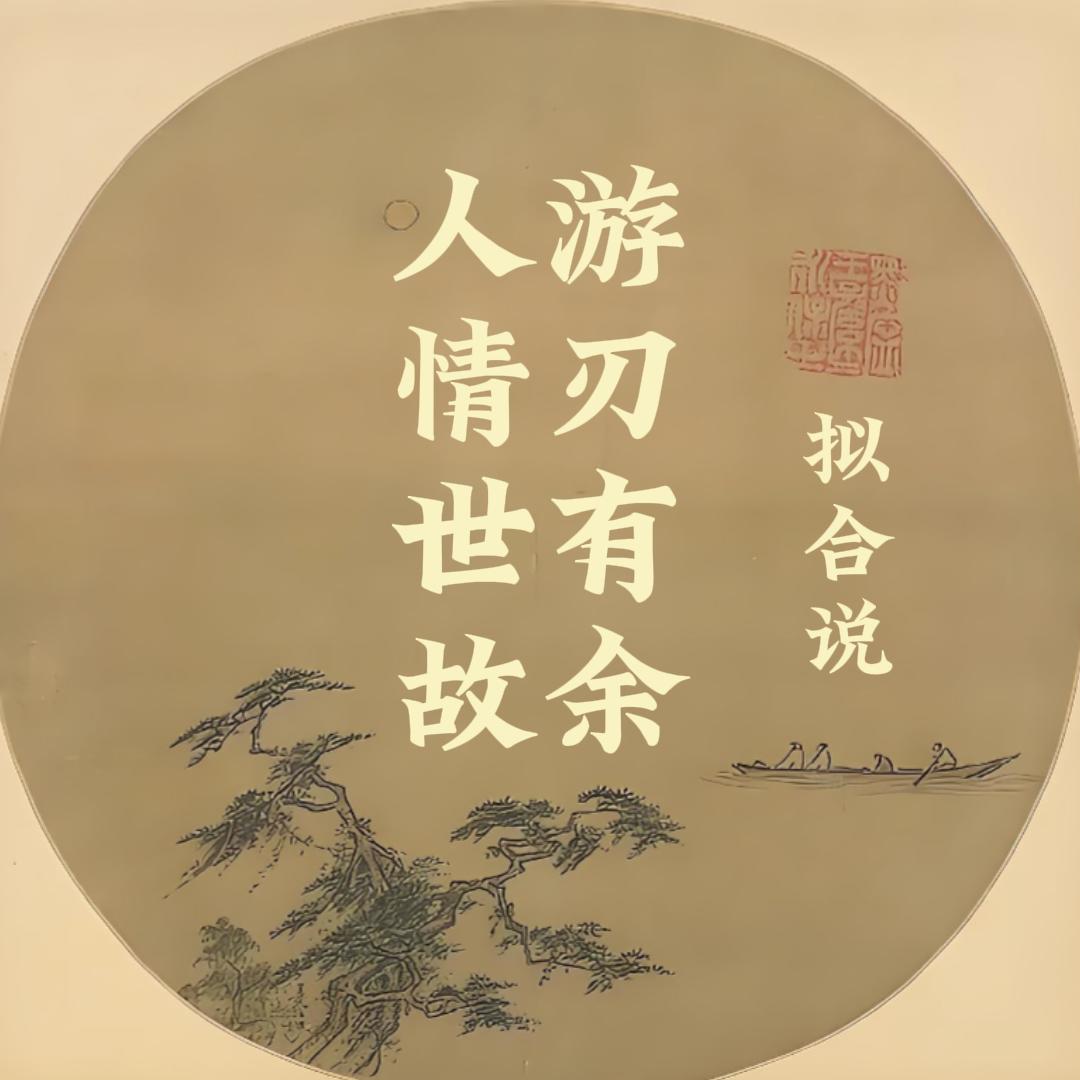 拟合说
游刃有余
人情世故